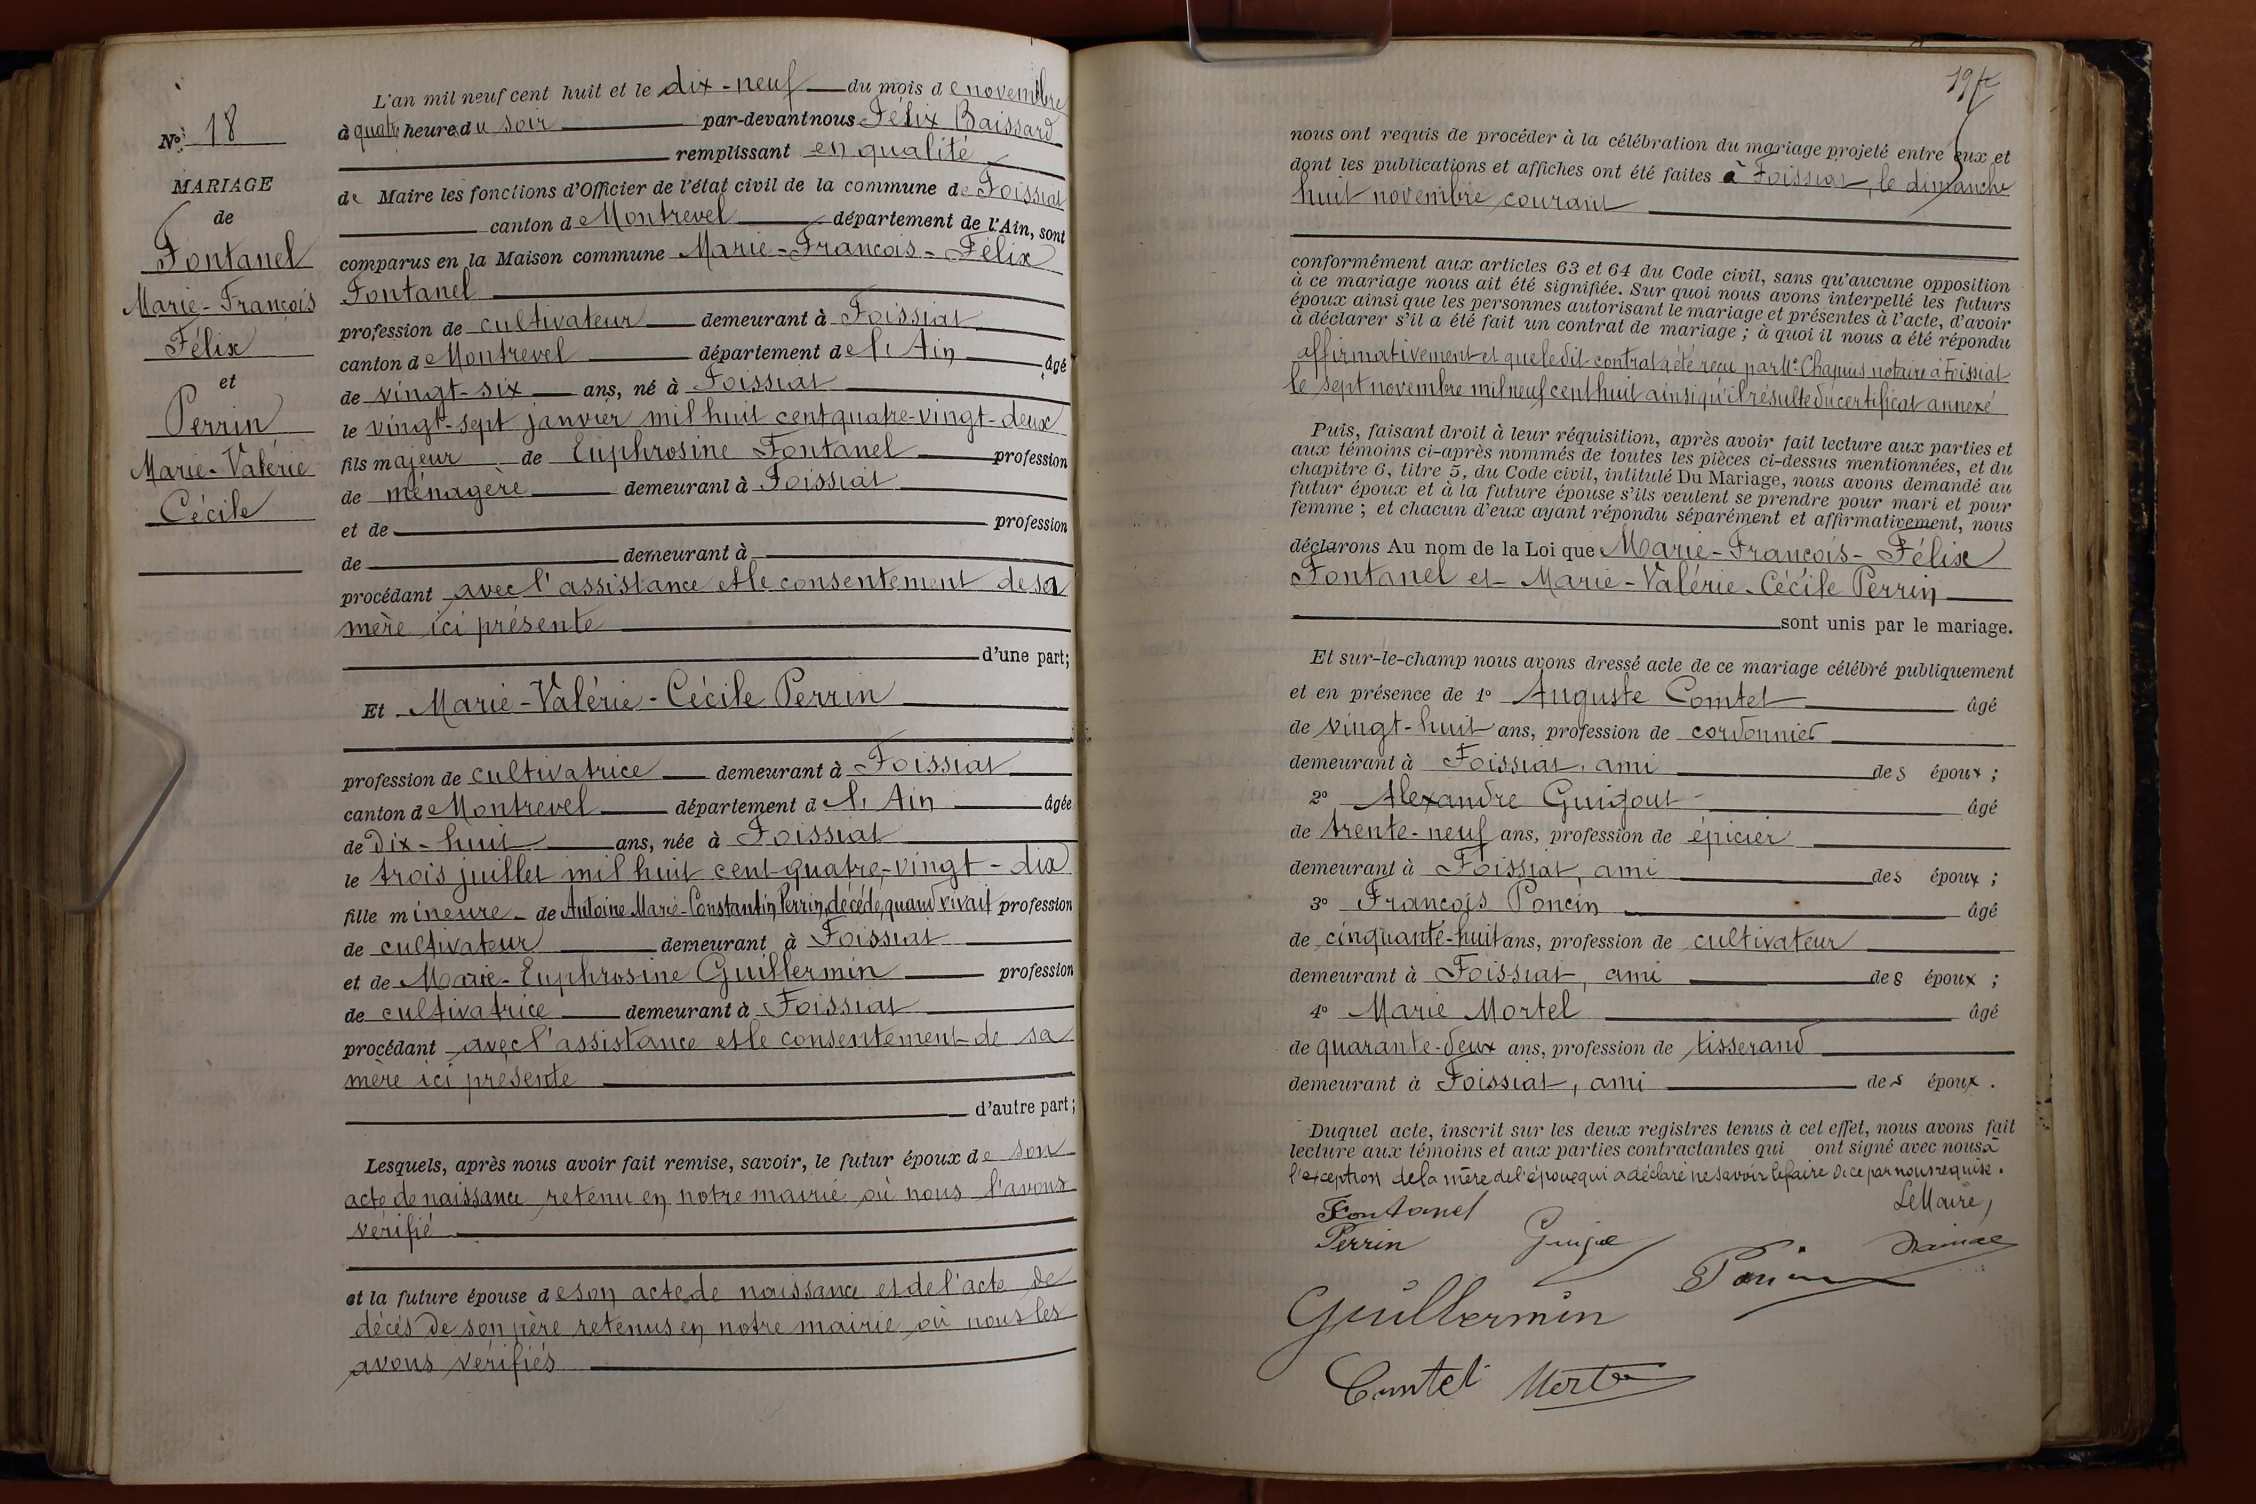 L'an mil neuf cent huit et le dix-neuf du mois de novembre
à quatre heure du soir par-devant nous Félix Baissard
remplissant en qualité
de Maire les fonctions d'Officier de l'état civil de la commune de Foissiat
canton de Montrevel département de l'Ain, sont
comparus en la Maison commune Marie-François-Félix
Fontanel
profession de cultivateur demeurant à Foissiat
canton de Montrevel département de l'Ain âgé
de vingt-six ans, né à Foissiat
le vingt-sept janvier mil huit cent quatre-vingt-deux
fils majeur de Euphrosine Fontanel profession
de ménagère demeurant à Foissiat
et de profession
de demeurant à
procédant avec l'assistance et le consentement de sa
mère ici présente
d'une part;
Et Marie-Valérie-Cécile Perrin
profession de cultivatrice demeurant à Foissiat
canton de Montrevel département de l'Ain âgée
de Dix-huit ans, née à Foissiat
le trois juillet mil huit cent quatre-vingt-dix
fille mineure de Antoine Marie-Constantin Perrin, décédé, quand vivait profession
de cultivateur demeurant à Foissiat
et de Marie-Euphrosine Guillermin profession
de cultivatrice demeurant à Foissiat
procédant avec l'assistance et le consentement de sa
mère ici présente
d'autre part;
Lesquels, après nous avoir fait remise, savoir, le futur époux de son
acte de naissance retenu en notre mairie où nous l'avons
vérifié
et la future épouse de son acte de naissance et de l'acte de
décès de son père retenus en notre mairie où nous les
avons vérifiés
No 18
MARIAGE
de
Fontanel
Marie-François
Félix
et
Perrin
Marie-Valérie
Cécile
nous ont requis de procéder à la célébration du mariage projeté entre eux et
dont les publications et affiches ont été faites à Foissiat, le dimanche
huit novembre courant
conformément aux articles 63 et 64 du Code civil, sans qu'aucune opposition
à ce mariage nous ait été signifiée. Sur quoi nous avons interpellé les futurs
époux ainsi que les personnes autorisant le mariage et présentes à l'acte, d'avoir
à déclarer s'il a été fait un contrat de mariage; à quoi il nous a été répondu
affirmativement et que ledit contrat a été reçu par Me Chapuis notaire à Foissiat
le sept novembre mil neuf cent huit ainsi qu'il résulte du certificat annexé
Puis, faisant droit à leur réquisition, après avoir fait lecture aux parties et
aux témoins ci-après nommés de toutes les pièces ci-dessus mentionnées, et du
chapitre 6, titre 5, du Code civil, intitulé Du Mariage, nous avons demandé au
futur époux et à la future épouse s'ils veulent se prendre pour mari et pour
femme; et chacun d'eux ayant répondu séparément et affirmativement, nous
déclarons Au nom de la Loi que Marie-François-Félix
Fontanel et Marie-Valérie-Cécile Perrin
sont unis par le mariage.
Et sur-le-champ nous avons dressé acte de ce mariage célébré publiquement
et en présence de 1o Auguste Comtet âgé
de vingt-huit ans, profession de cordonnier
demeurant à Foissiat, ami des époux;
2o Alexandre Guigout âgé
de trente-neuf ans, profession de épicier
demeurant à Foissiat, ami des époux;
3o François Poncin âgé
de cinquante-huit ans, profession de cultivateur
demeurant à Foissiat, ami des époux;
4o Marie Mortel âgé
de quarante-deux ans, profession de tisserand
demeurant à Foissiat, ami des époux.
Duquel acte, inscrit sur les deux registres tenus à cet effet, nous avons fait
lecture aux témoins et aux parties contractantes qui ont signé avec nous à
l'exception de la mère de l'époux qui a déclaré ne savoir le faire de ce par nous requise.
Fontanel
Le Maire,
Perrin
Guillermin
Comtet